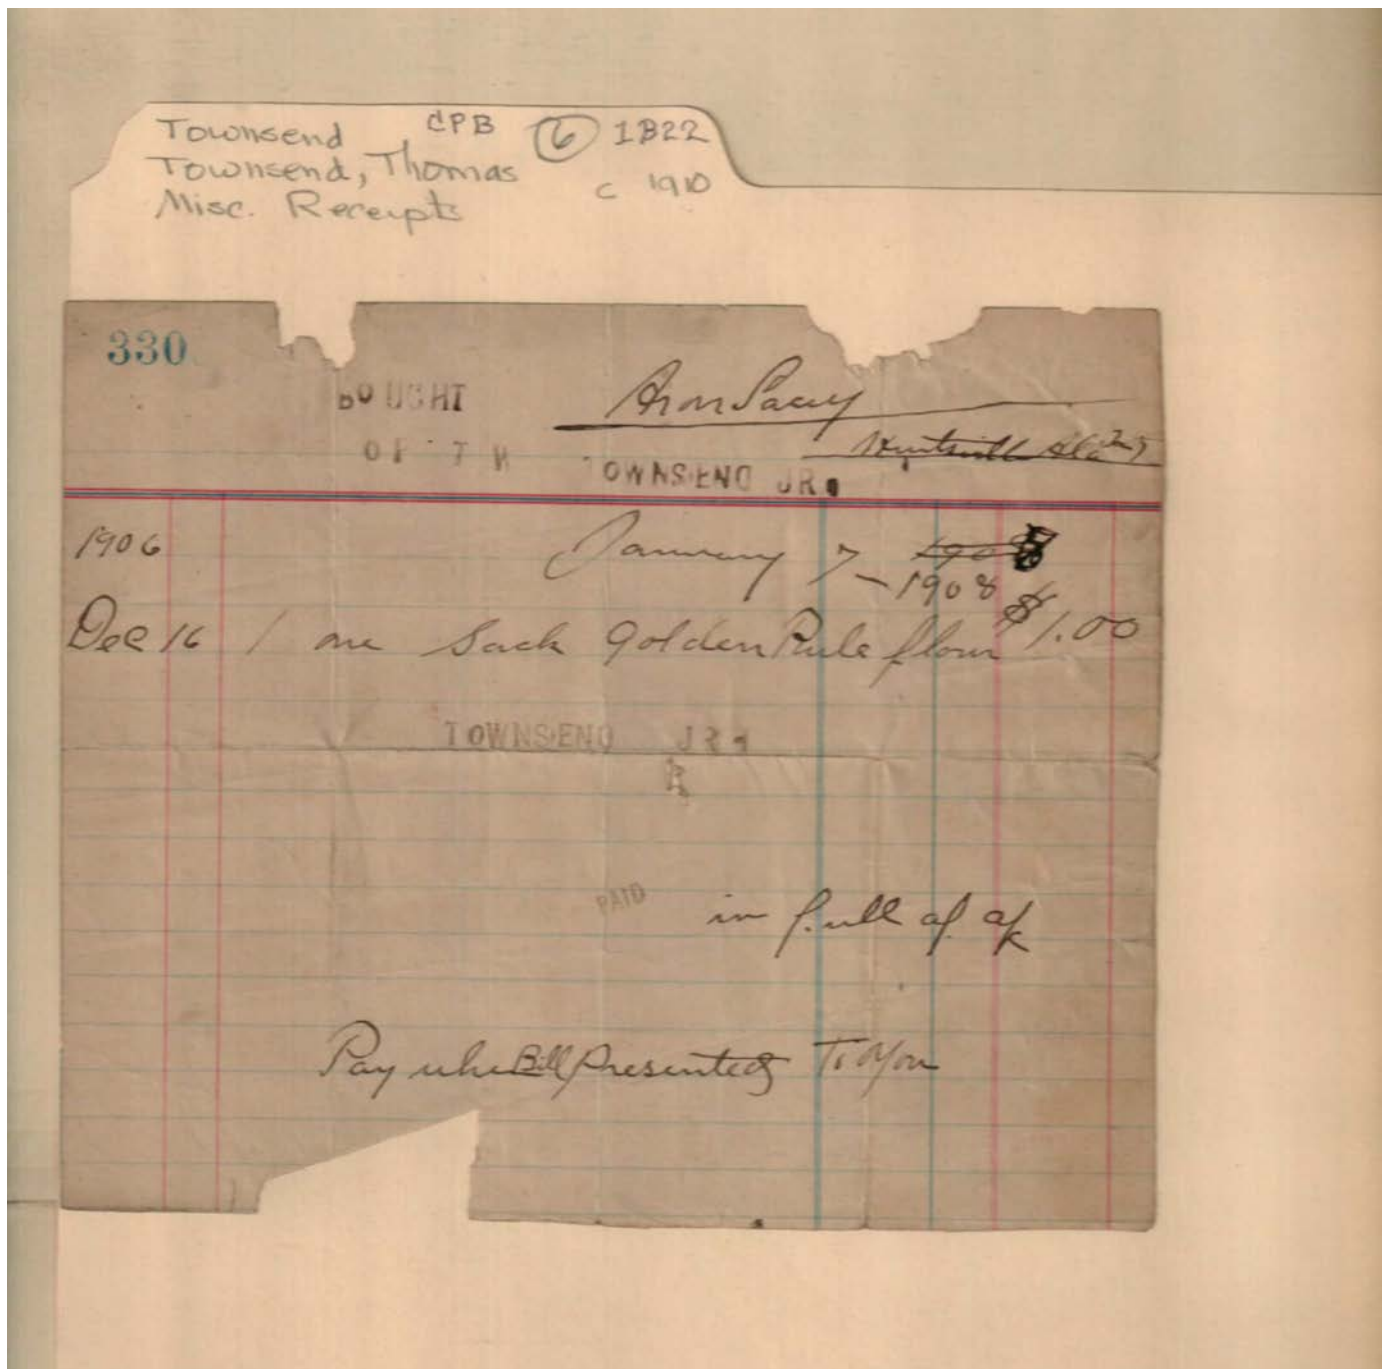 Townsend CPB 6 1B22
Townsend, Thomas c 1910
Misc. Receipts
330
BOUGHT Aron Lacey
OF T W TOWNSEND JR. Huntsville Ala
1906 January 7 - 1908
1908
Dec 16 1 one Sack Golden Rule flour $1.00
TOWNSEND JR
R
PAID in full of a/c
Pay when Bill Presented To You